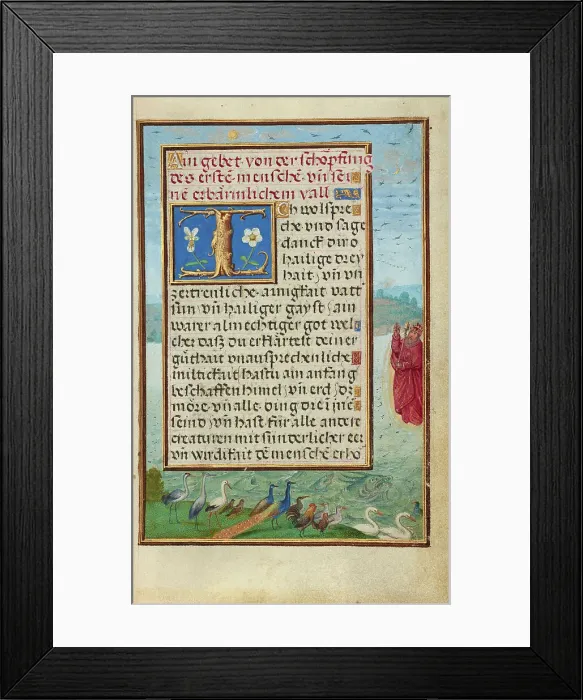 Ain gebet von der schöpfung
des erstē menschē vn̄ sei
nē erbärmlichem vall
Ich wolspre
che vnd sage
danck dir o
hailige drey
hait vn̄ vn
zertrenliche ainigkait vatt
sun vn̄ hailiger gayst ain
warer almechtiger got wel
cher daß du erklärtest deiner
güthait vnaussprechenliche
miltickait hastu ain anfang
beschaffen himel vn̄ erd dz
möre vn̄ alle ding dre īne
seind vn̄ hast für alle ander
creaturen mit sunderlicher eer
vn̄ wirdikait dē menschē erhö